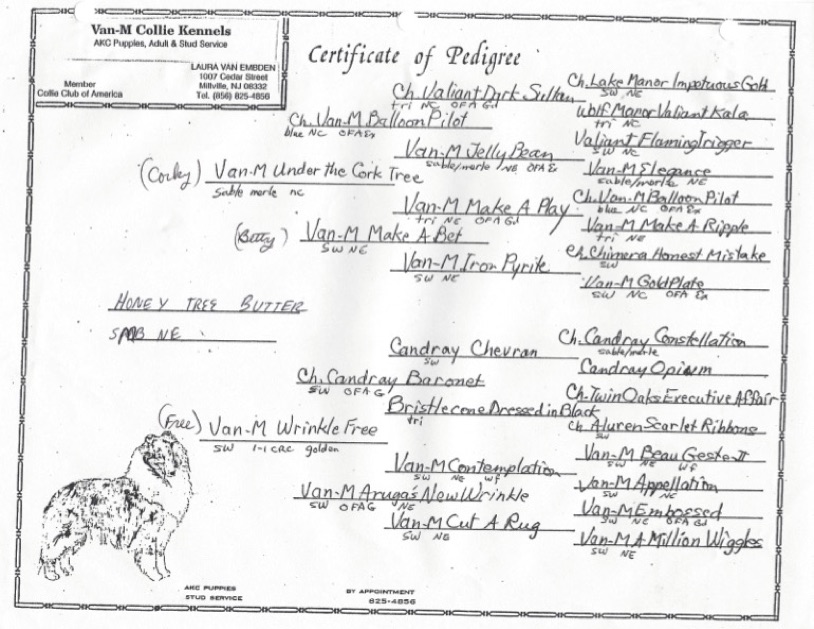 Van-M Collie Kennels
AKC Puppies, Adult & Stud Service
LAURA VAN EMBDEN
1007 Cedar Street
Millville, NJ 08332
Tel. (856) 825-4856
Member
Collie Club of America
Certificate of Pedigree
Ch. Lake Manor Impetuous Gold
SW NE
Ch. Valiant Dirk Sultan
tri NC OFA Gd
Wolf Manor Valiant Kala
tri NC
Ch. Van-M Balloon Pilot
blue NC OFA Ex
Valiant Flaming Trigger
SW NC
Van-M Jelly Bean
sable/merle NE OFA Ex
Van-M Elegance
sable/merle NE
(Corky) Van-M Under the Cork Tree
Sable merle nc
Ch. Van-M Balloon Pilot
blue NC OFA Ex
Van-M Make A Play
tri NE OFA Gd
Van-M Make A Ripple
tri NE
(Betty) Van-M Make A Bet
SW NE
Ch. Chimera Honest Mistake
SW
Van-M Iron Pyrite
SW NE
Van-M Gold Plate
SW NC OFA Ex
HONEY TREE BUTTER
NE
Ch. Candray Constellation
sable/merle
Candray Chevran
SW
Candray Opium
Ch. Candray Baronet
SW OFA G
Ch. Twin Oaks Executive Affair
Bristlecone Dressed in Black
tri
Ch. Aluren Scarlet Ribbons
SW
(Free) Van-M Wrinkle Free
SW 1-1 CRC golden
Van-M Beau Geste II
SW NE Wf
Van-M Contemplation
SW NE wf
Van-M Appellation
SW NE
Van-M Aruga's New Wrinkle
SW OFAG NE
Van-M Embossed
SW NE OFA Gd
Van-M Cut A Rug
SW NE
Van-M A Million Wiggles
SW NE
AKC PUPPIES
STUD SERVICE
BY APPOINTMENT
825-4856